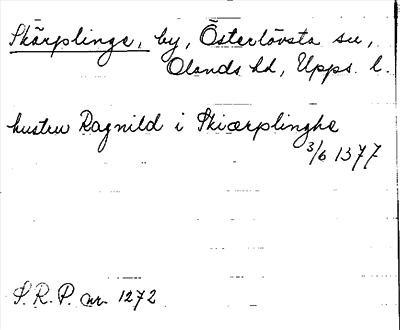 Skärplinge, by, Österlövsta sn,
Olands hd, Upps. l.
hustru Ragnild i Skiærplinghe
3/6 1377
S.R.P. nr. 1272